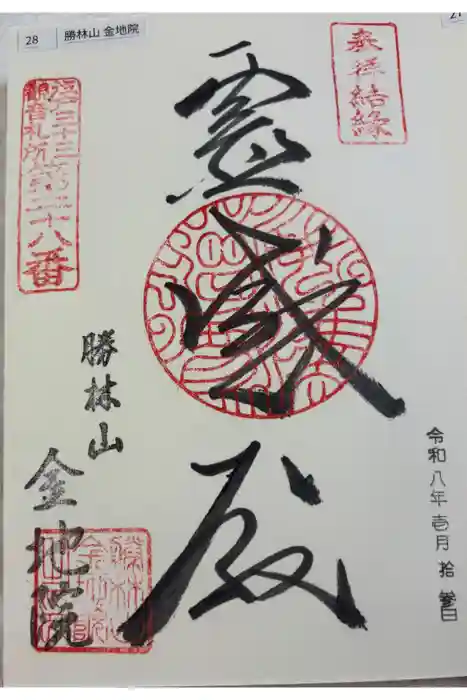 28
勝林山 金地院
21
参拝結縁
江戸三十三
観音札所
第二十八番
霊感殿
令和八年壱月拾
日
勝林山
金地院
勝林山
金地院